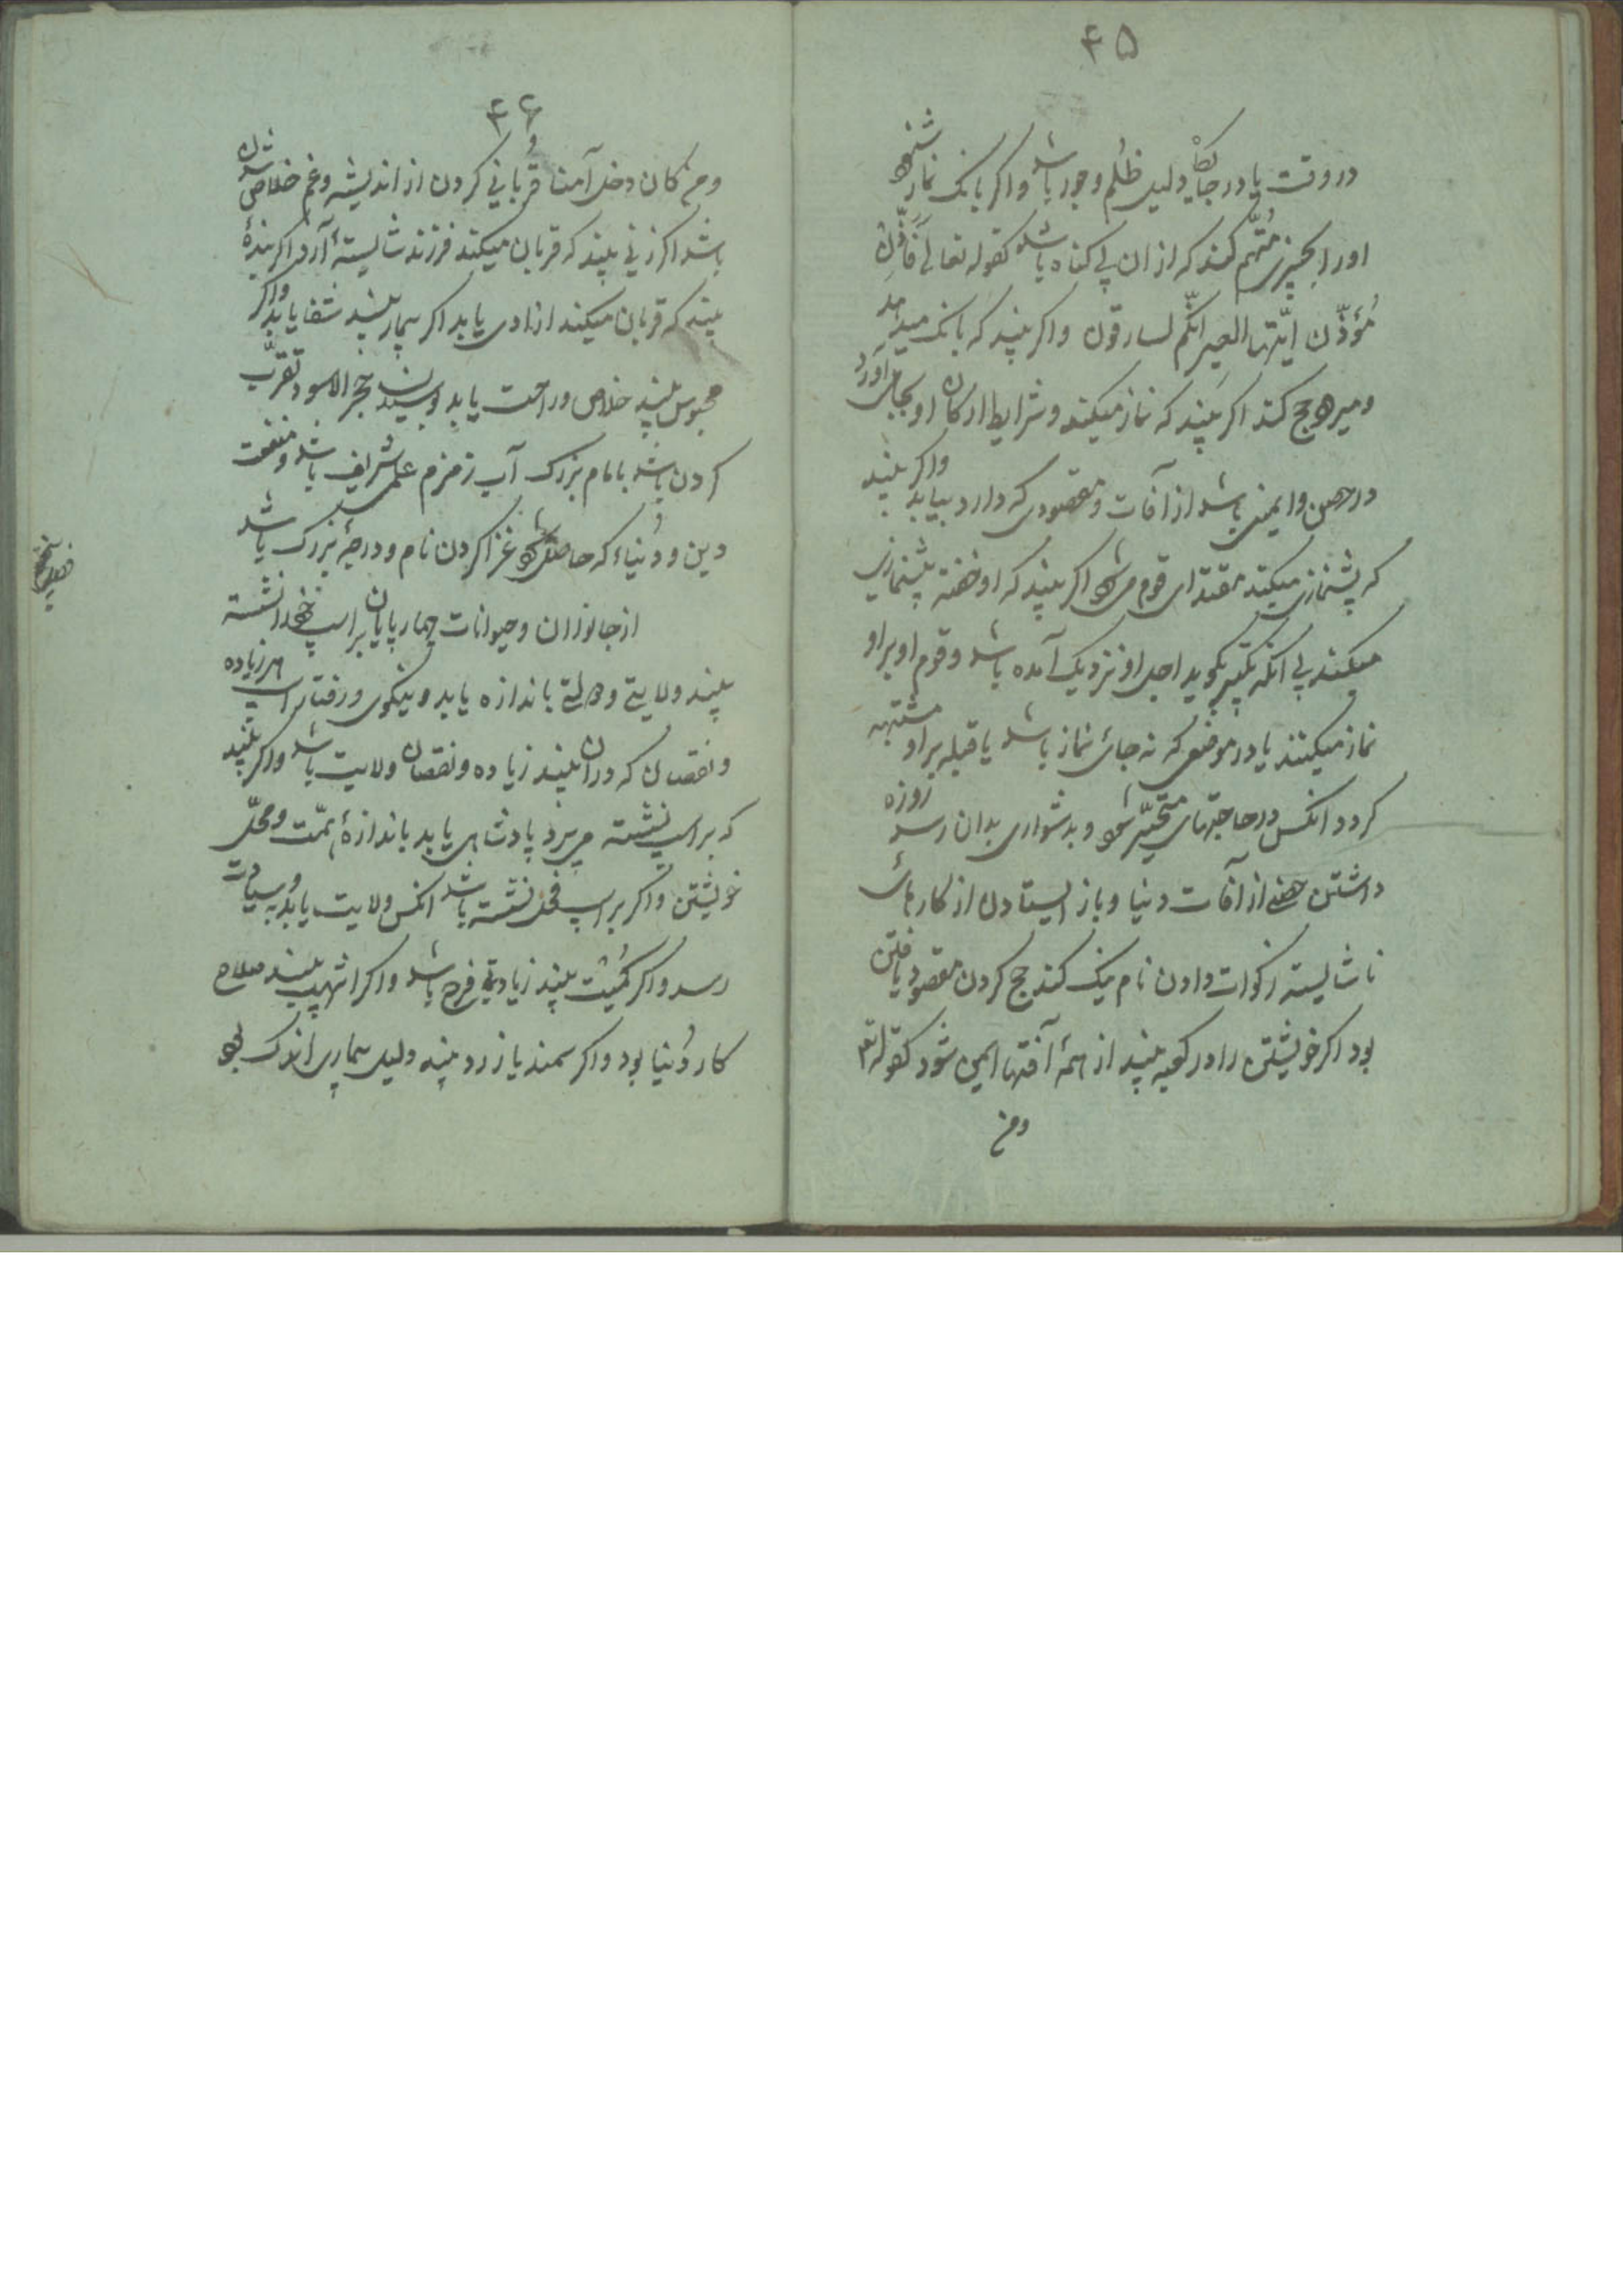 ۴۵
در وقت یا در جای دلیل ظلم و جور باشد و اکر بانک نماز شنود
او را بچیزی متهم کنند که از ان بی کناه باشد کقوله تعالی فَاَذَّنَ
مُؤَذّن ایّتها العیر انّکم لسارقون و اکر بیند که بانک میدهد
و میرود حج کند اکر بیند که نماز میکند و شرایط ارکان او بجای آورد
در حصن و ایمنی باشد از آفات و مقصودی که دارد بیابد و اکر بیند
که پشنمازی میکند مقتدای قوم می شود اکر بیند که او خفته پیشنمازی
میکند بی انکه تکبیر بکوید اجل او نزدیک آمده باشد و قوم او بر او
نماز میکنند یا در موضعی که نه جای نماز باشد یا قبله بر او مشتبه
کردد انکس در حاجتهای متحیّر شود و بدشواری بدان رسد روزه
داشتن حصنی از آفات دنیا و باز ایستادن از کارهای
ناشایسته زکوات دادن نام نیک کند حج کردن مقصود یافتن
بود اکر خویشتن را در کعبه بیند از همهٔ آفتها ایمن شود کقوله تع
ومن
۴۶
ومن کان دخل آمنا و قربانی کردن از اندیشه و غم خلاص شدن
باشد اکر زنی بیند که قربان میکند فرزند شایستهٔ آرد اکر بندهٔ
بیند که قربان میکند ازادی یابد اکر بیمار بیند شفا یابد و اکر
محبوس بیند خلاص و راحت یابد و بوسیدن حجر الاسود تقرّب
کردن باشد بامام بزرک آب زمزم علمی شریف باشد و منفعت
دین و دُنیاء که حاصل شود غزا کردن نام و درجهٔ بزرک باشد
از جانوران و حیوانات چهارپایان بر اسب خود نشسته
بیند ولایتی و دولتی باندازه یابد و نیکوی و رفتار اسب هر زیاده
و نقصان که در ان بیند زیاده و نقصان ولایت باشد و اکر بیند
که بر اسب نشسته می پرد پادشاهی یابد باندازهٔ همّت و محلّ
خویشتن و اکر بر اسب فحل نشسته باشد انکس ولایت یابد و بسیادت
رسد و اکر کمیت بیند زیادتی فرح باشد و اکر اشهب بیند صلاح
کار دُنیا بود و اکر سمند یا زرد بیند دلیل بیماری اندک بود